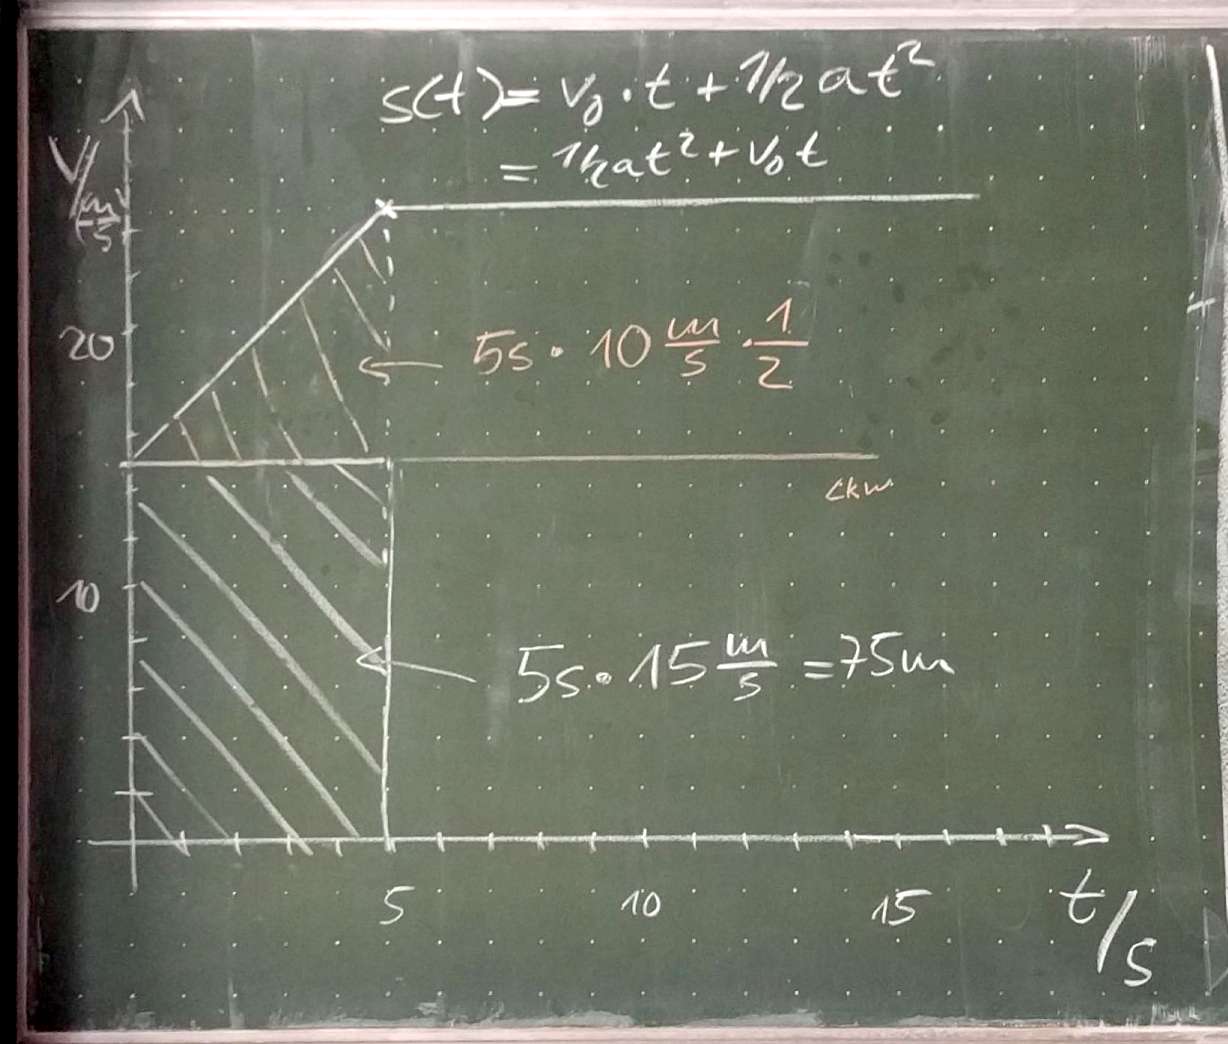 s(t) = v₀ · t + 1/2 at²
= 1/2 at² + v₀ t
V/
m/s
20
5s · 10 m/s · 1/2
Lkw
10
5s · 15 m/s = 75m
5 10 15
t/s